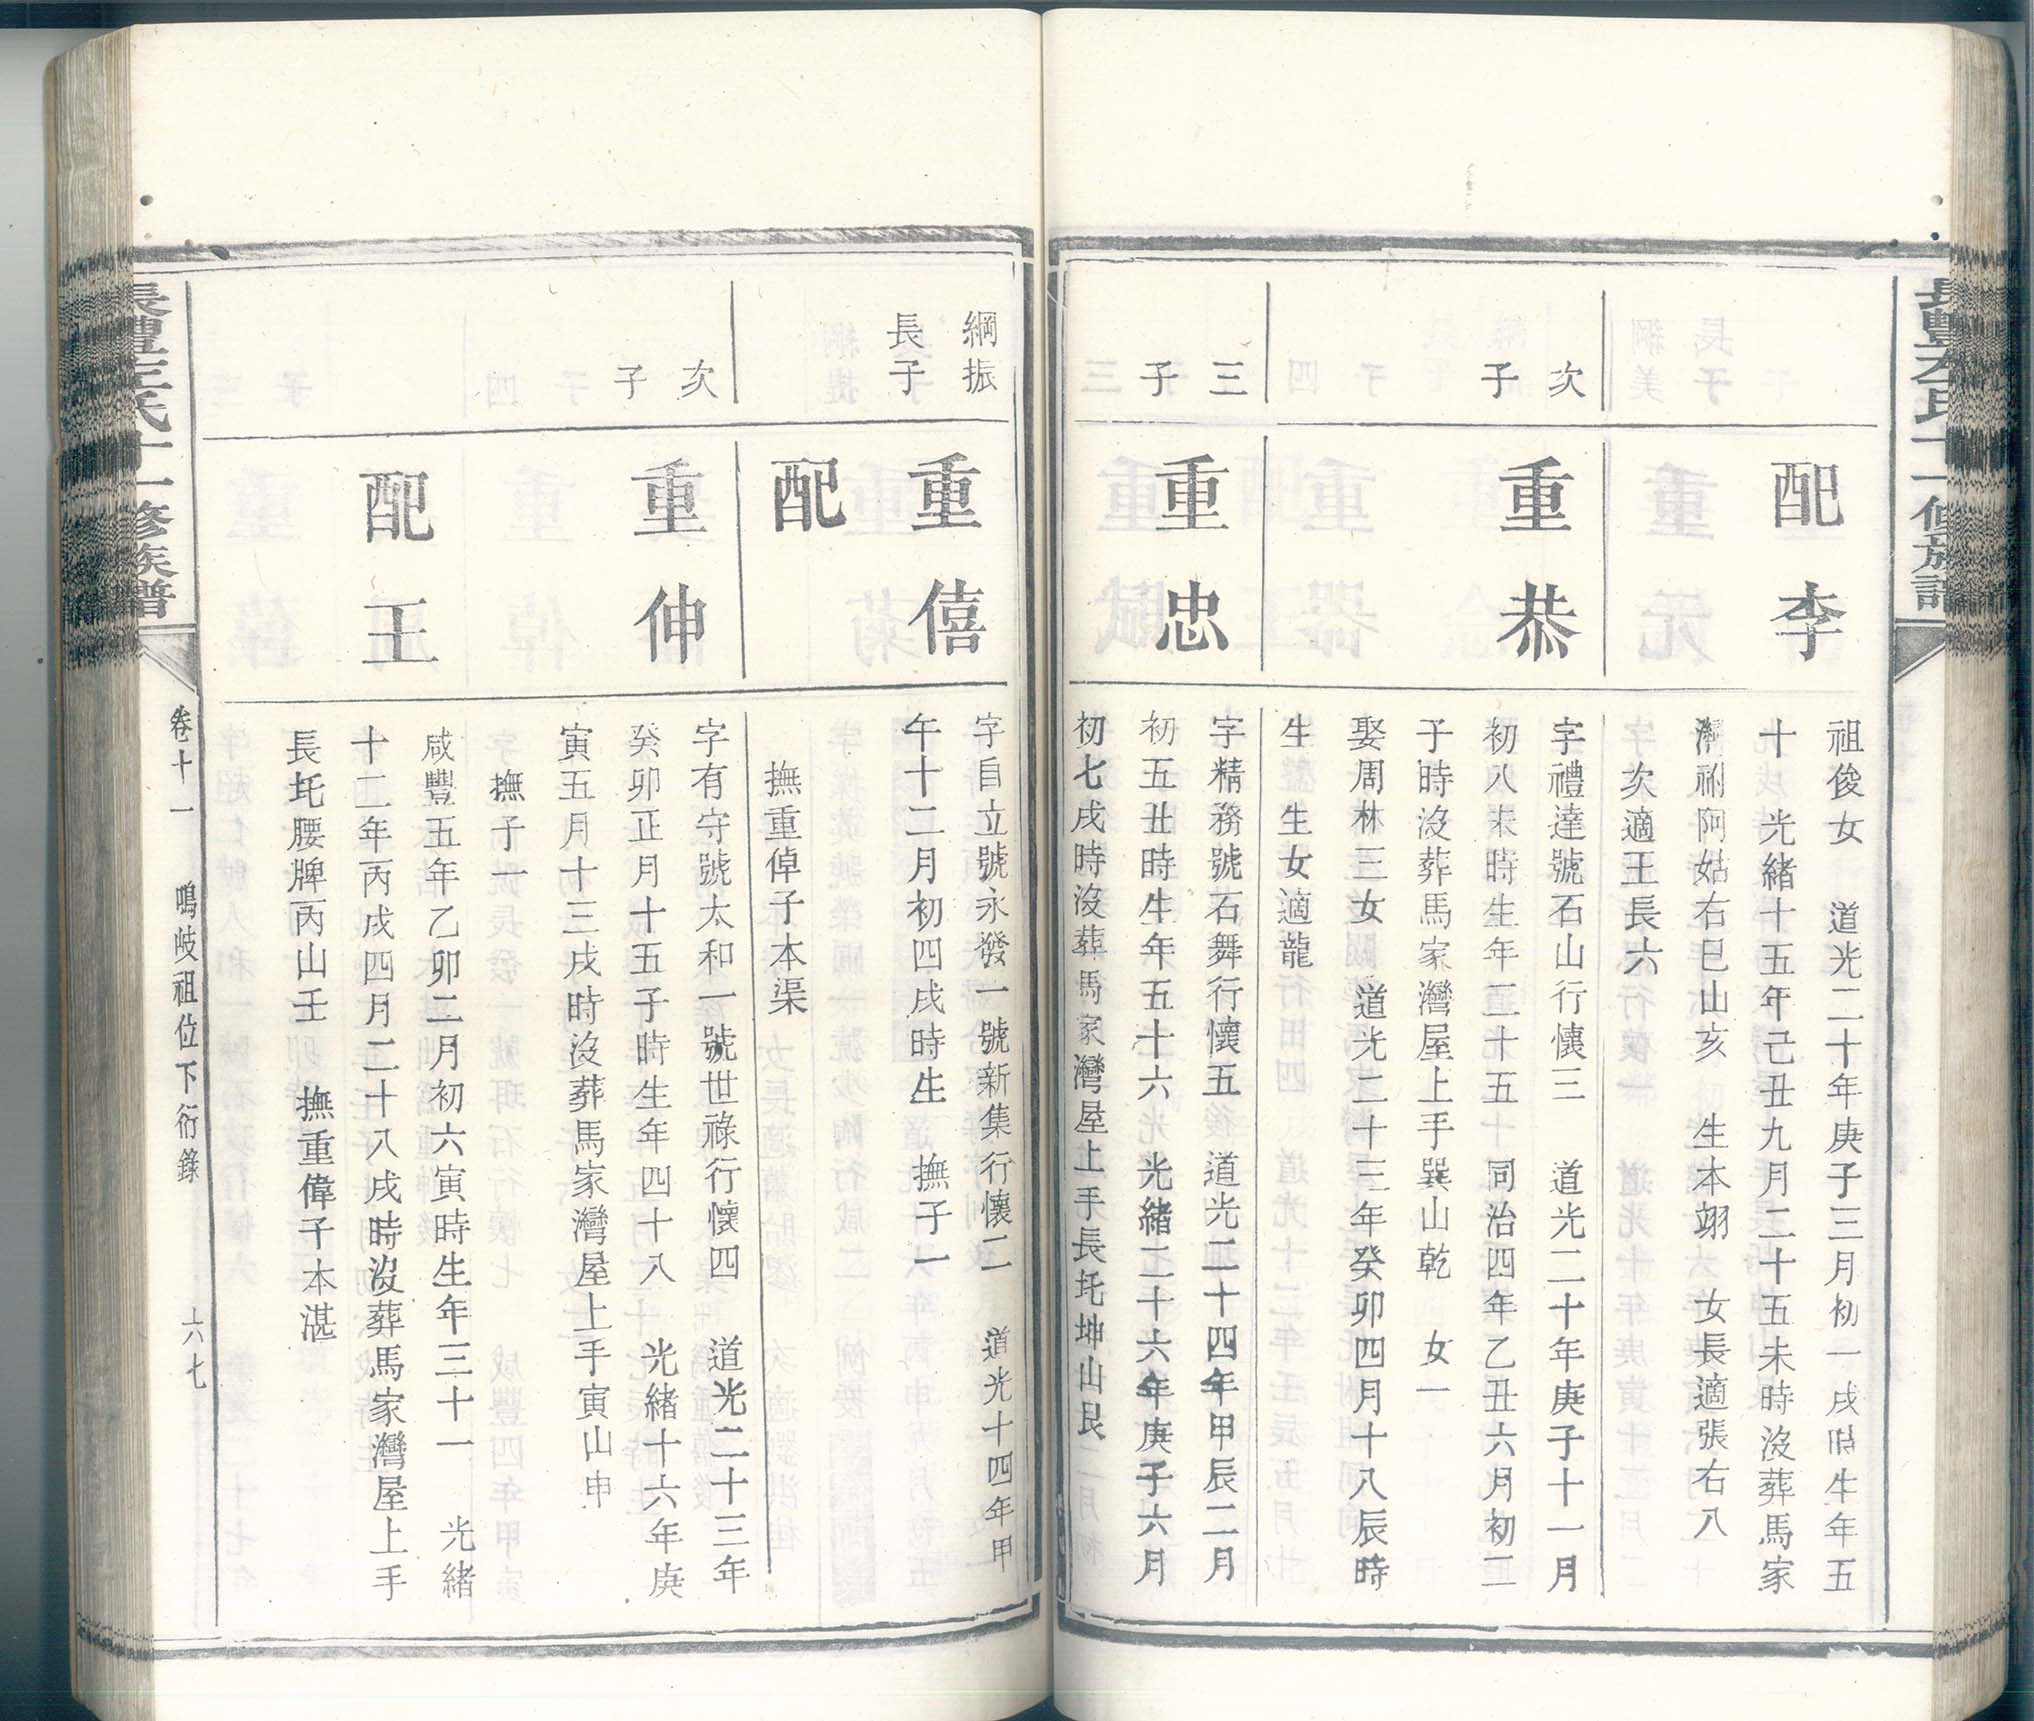 配李
祖俊女　道光二十年庚子三月初一戌時生年五
十　光緒十五年己丑九月二十五未時沒葬馬家
灣祔阿姑右巳山亥　生本翊　女長適張右八
次適王長六
次子
重恭
字禮達號石山行懷三　道光二十年庚子十一月
初八未時生年二十五　同治四年乙丑六月初二
子時沒葬馬家灣屋上手巽山乾　女一
娶周林三女　道光二十三年癸卯四月十八辰時
生　生女適龍
三子
重忠
字精務號石舞行懷五　道光二十四年甲辰二月
初五丑時生年五十六　光緒二十六年庚子六月
初七戌時沒葬馬家灣屋上手長圫坤山艮
綱振
長子
重僖
字自立號永發一號新集行懷二　道光十四年甲
午十二月初四戌時生　撫子一
配
撫重倬子本渠
次子
重伸
字有守號太和一號世祿行懷四　道光二十三年
癸卯正月十五子時生年四十八　光緒十六年庚
寅五月十三戌時沒葬馬家灣屋上手寅山申
撫子一
配王
咸豐五年乙卯二月初六寅時生年三十一　光緒
十二年丙戌四月二十八戌時沒葬馬家灣屋上手
長圫腰牌丙山壬　撫重偉子本湛
氏十一修族譜
卷十一　鳴岐祖位下衍錄　六七